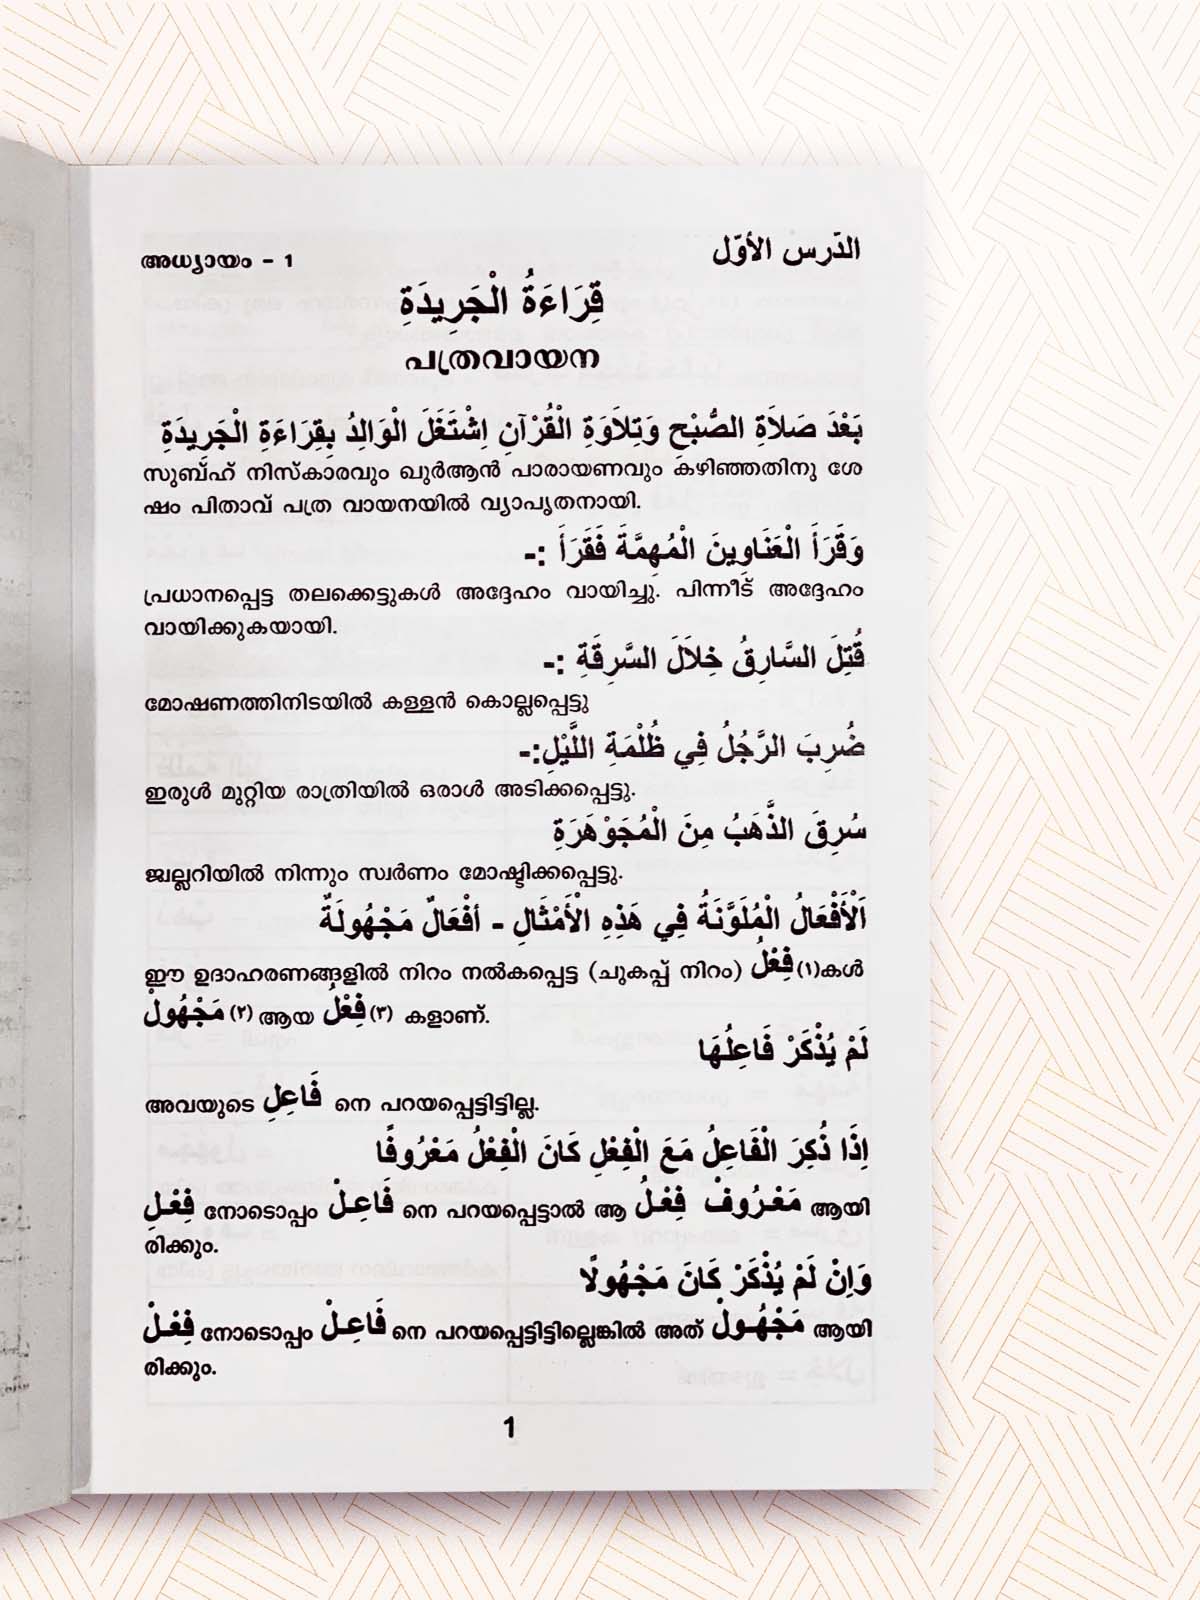 അധ്യായം - 1 الدّرس الأوّل
قِرَاءَةُ الْجَرِيدَةِ
പത്രവായന
بَعْدَ صَلَاةِ الصُّبْحِ وَتِلَاوَةِ الْقُرْآنِ اِشْتَغَلَ الْوَالِدُ بِقِرَاءَةِ الْجَرِيدَةِ
സുബ്ഹ് നിസ്കാരവും ഖുർആൻ പാരായണവും കഴിഞ്ഞതിനു ശേ
ഷം പിതാവ് പത്ര വായനയിൽ വ്യാപൃതനായി.
وَقَرَأَ الْعَنَاوِينَ الْمُهِمَّةَ فَقَرَأَ :-
പ്രധാനപ്പെട്ട തലക്കെട്ടുകൾ അദ്ദേഹം വായിച്ചു. പിന്നീട് അദ്ദേഹം
വായിക്കുകയായി.
قُتِلَ السَّارِقُ خِلَالَ السَّرِقَةِ :-
മോഷണത്തിനിടയിൽ കള്ളൻ കൊല്ലപ്പെട്ടു
ضُرِبَ الرَّجُلُ فِي ظُلْمَةِ اللَّيْلِ:-
ഇരുൾ മുറ്റിയ രാത്രിയിൽ ഒരാൾ അടിക്കപ്പെട്ടു.
سُرِقَ الذَّهَبُ مِنَ الْمُجَوْهَرَةِ
ജ്വല്ലറിയിൽ നിന്നും സ്വർണം മോഷ്ടിക്കപ്പെട്ടു.
اَلْأَفْعَالُ الْمُلَوَّنَةُ فِي هَذِهِ الْأَمْثَالِ - أفْعَالٌ مَجْهُولَةٌ
ഈ ഉദാഹരണങ്ങളിൽ നിറം നൽകപ്പെട്ട (ചുകപ്പ് നിറം) فِعْلُ (١)കൾ
مَجْهُولْ (٢) ആയ فِعْلُ (٣) കളാണ്.
لَمْ يُذْكَرْ فَاعِلُهَا
അവയുടെ فَاعِلِ നെ പറയപ്പെട്ടിട്ടില്ല.
اِذَا ذُكِرَ الْفَاعِلُ مَعَ الْفِعْلِ كَانَ الْفِعْلُ مَعْرُوفًا
فِعْلِ നോടൊപ്പം فَاعِلْ നെ പറയപ്പെട്ടാൽ ആ فِعْلُ مَعْرُوفْ ആയി
രിക്കും.
وَاِنْ لَمْ يُذْكَرْ كَانَ مَجْهُولًا
فِعْلْ നോടൊപ്പം فَاعِلْ നെ പറയപ്പെട്ടിട്ടില്ലെങ്കിൽ അത് مَجْهُولْ ആയി
രിക്കും.
1